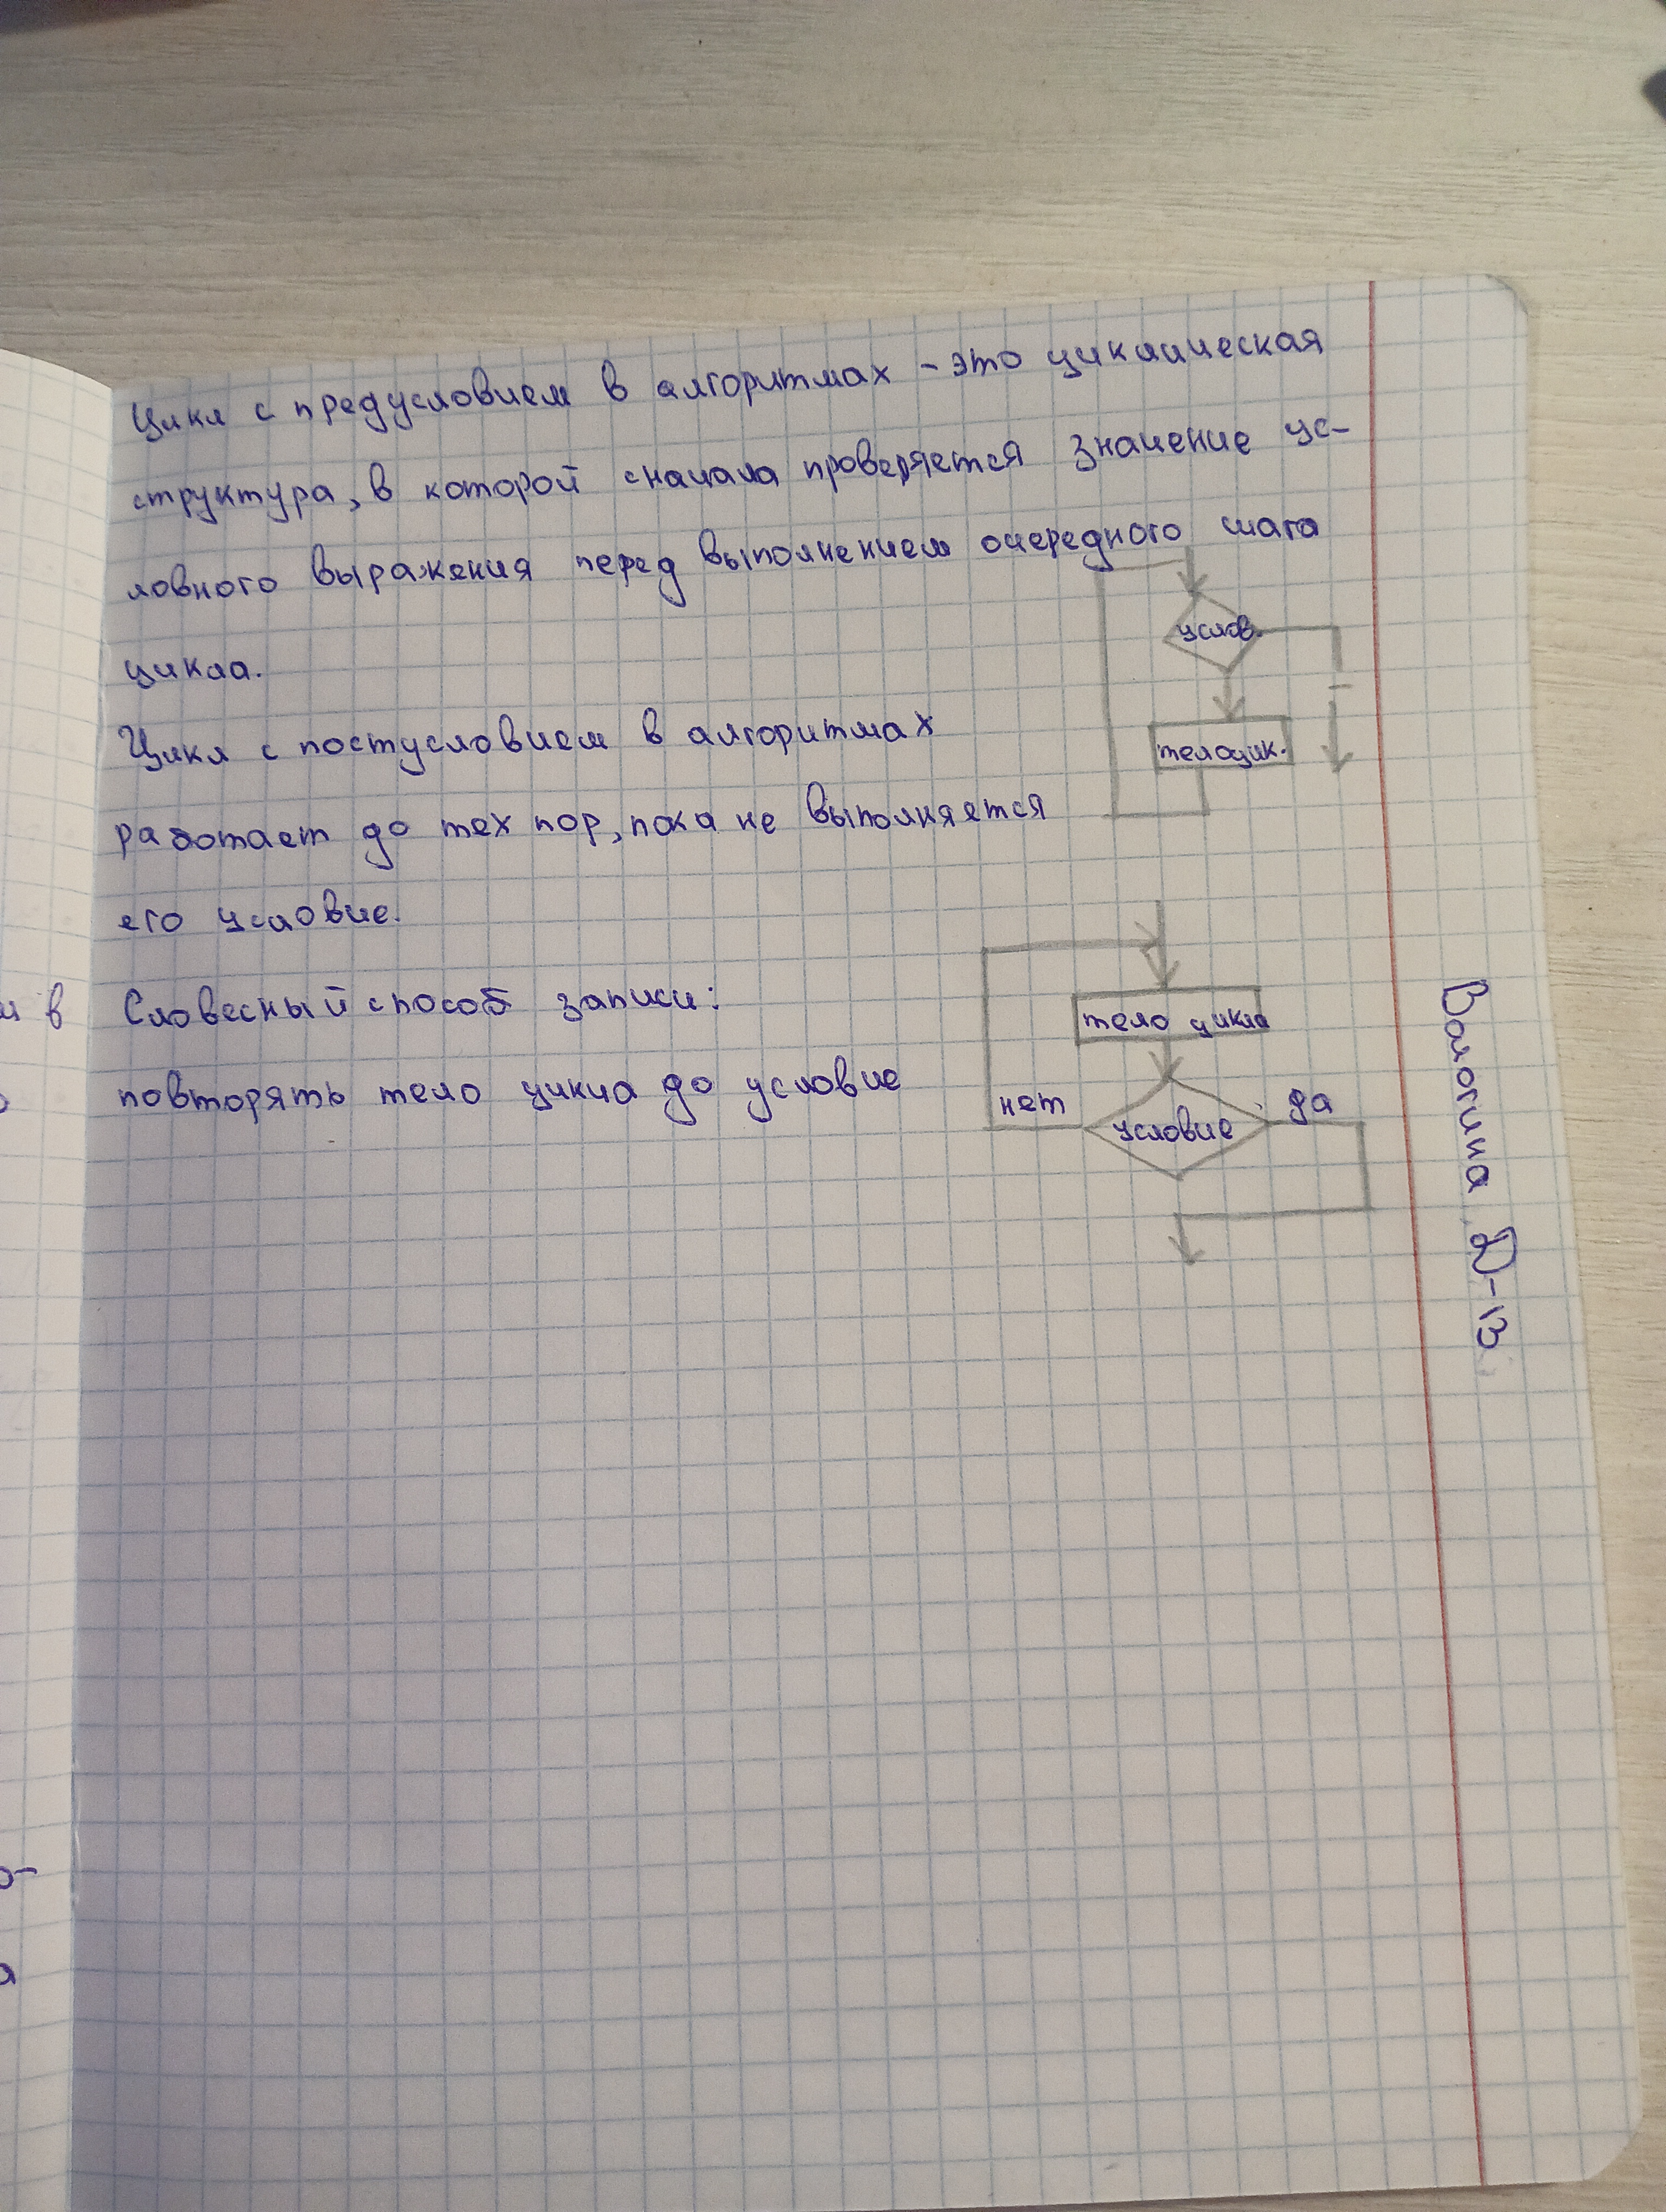 Цикл с предусловием в алгоритмах - это циклическая
структура, в которой сначала проверяется значение ус-
ловного выражения перед выполнением очередного шага
цикла.
услов.
тело цик.
Цикл с постусловием в алгоритмах
работает до тех пор, пока не выполняется
его условие.
Словесный способ записи:
повторять тело цикла до условие
тело цикла
нет
условие
да
Вологина Д-13
и в
о-
а